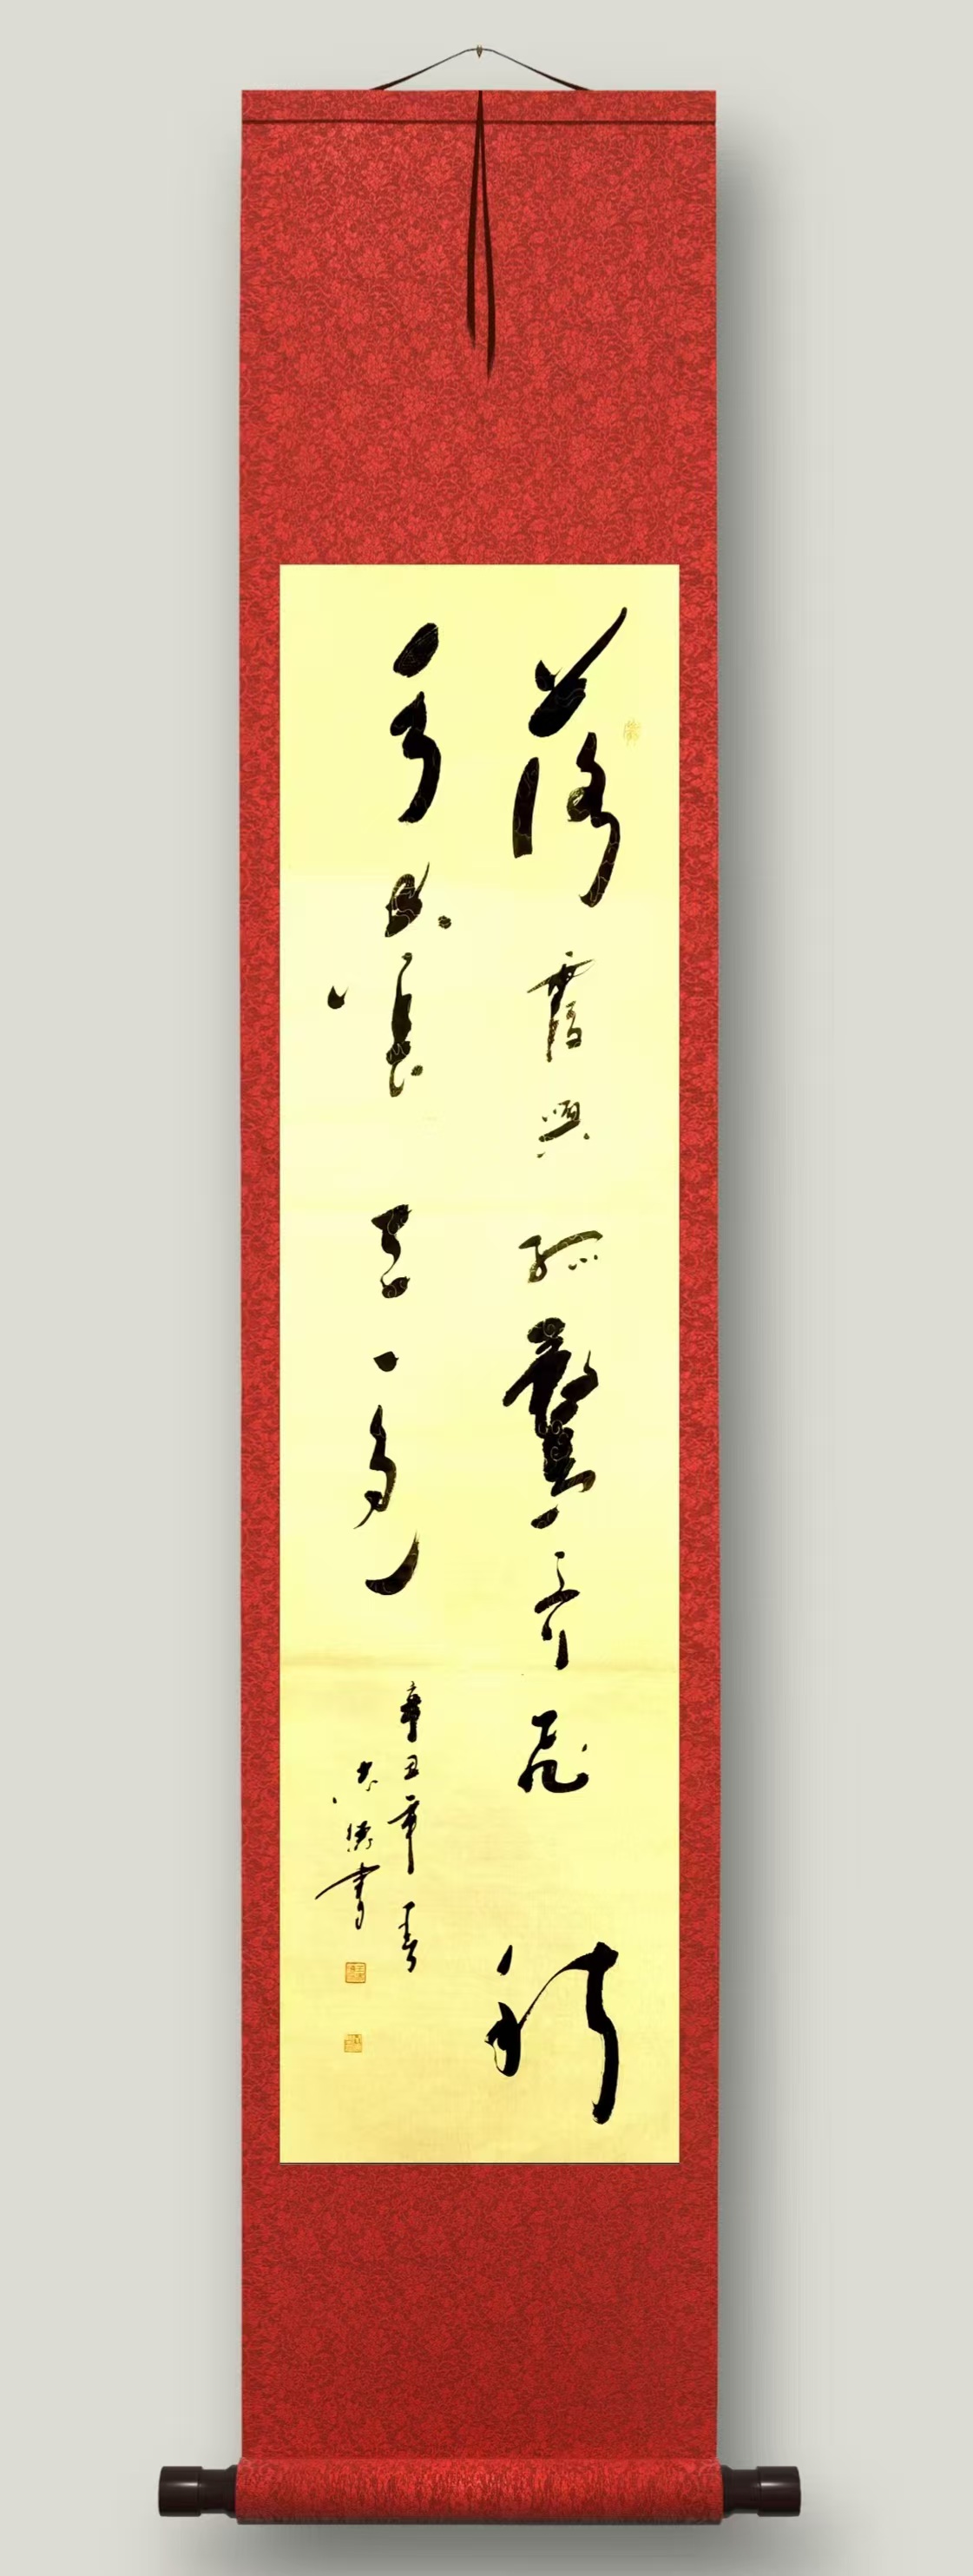 落霞與孤鶩齊飛秋
水共長天一色
辛丑年春
書